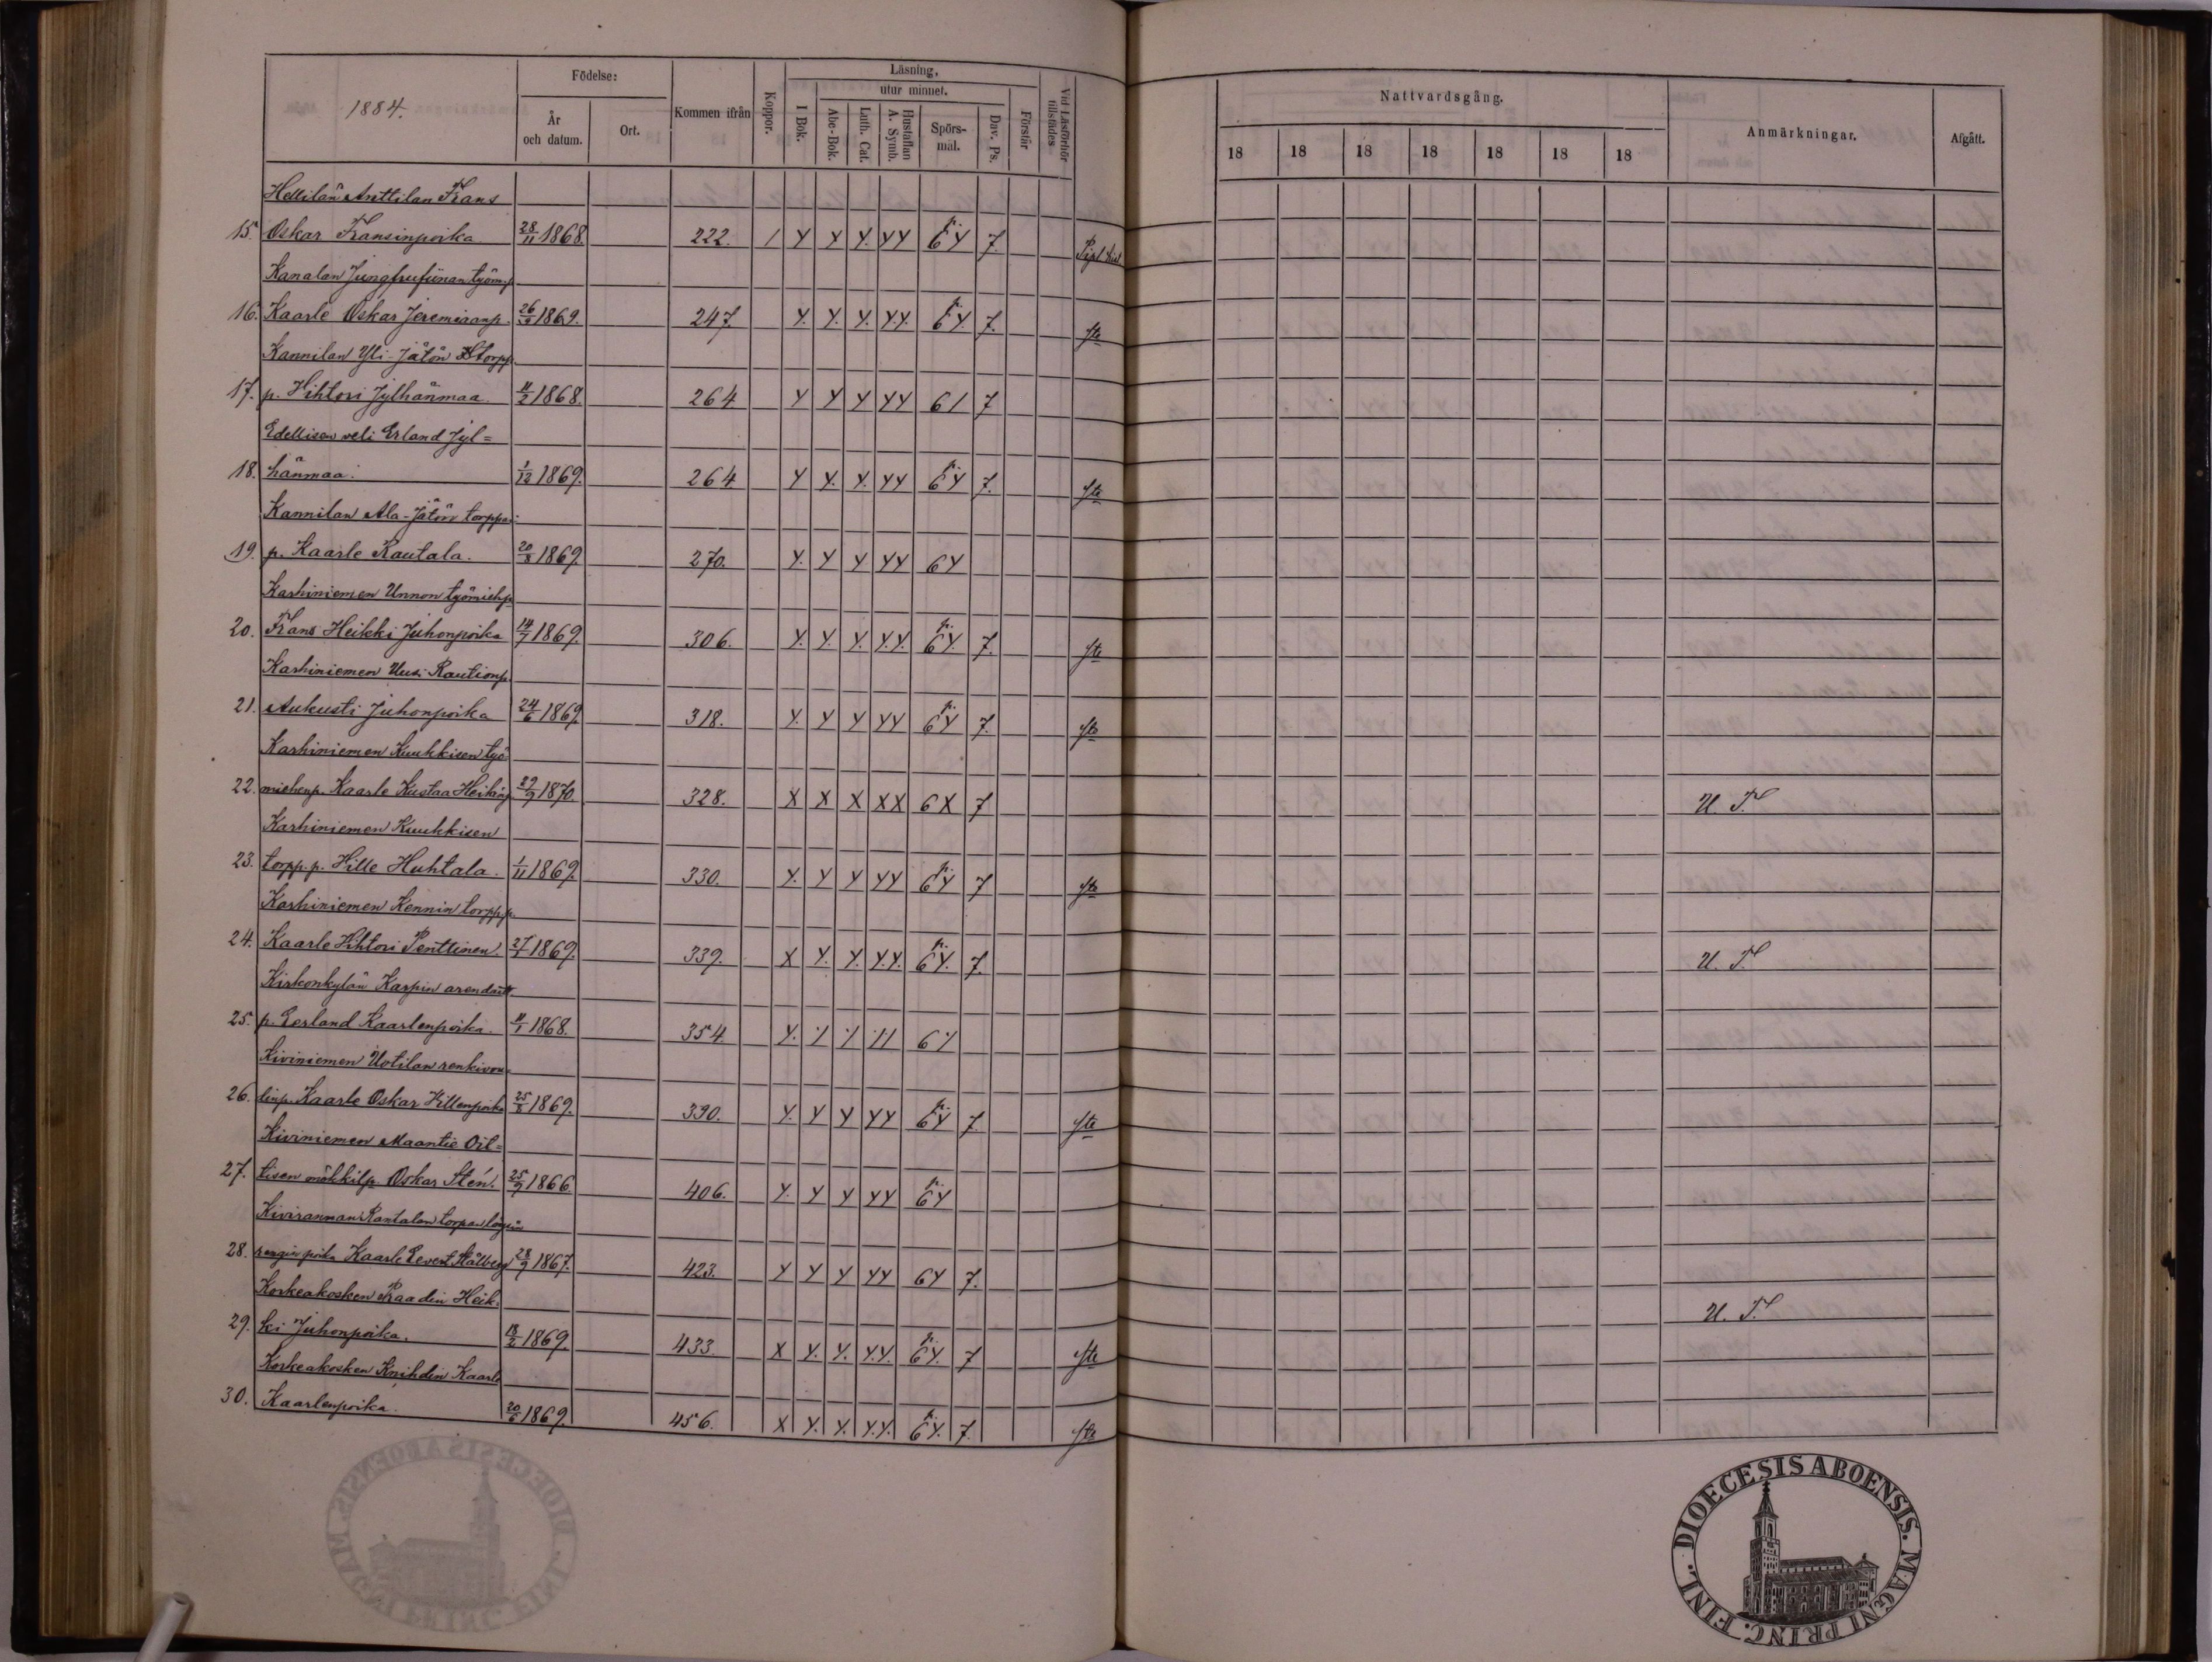 1884.
Födelse:
År och datum.
Ort.
Kommen ifrån
Koppor.
Läsning,
utur minnet.
I Bok.
Abc-Bok.
Luth. Cat.
Hustaflan A. Symb.
Spörsmål.
Dav. Ps.
Förstår
Vid Läsförhör tillstädes
Nattvardsgång.
18 18 18 18 18 18 18
Anmärkningar.
Afgått.
Hellilän Anttilan Frans
15. Oskar Fransinpoika 28/11 1868. 222. / Y Y Y. YY 6Y 7.
Kanalan Jungfrufiinan työm.p.
16. Kaarle Oskar Jeremiaanp. 1869. 247. Y. Y. Y. Y.Y. 6Y. 7. ste
Kannilan Yli-Jätön torpp.
17. p. Vihtori Jylhänmaa. 11/2 1868. 264 Y Y Y YY 6/ 7
Edellisen veli Erland Jyl=
18. hänmaa. 1/12 1869. 264 Y Y. Y. YY 6Y 7. ste
Kannilan Ala-Jätön torppa-
19. p. Kaarle Rautala. 20/8 1869. 270. Y. Y Y YY 6Y
Karhiniemen Unnon työmiehp.
20. Frans Heikki Juhonpoika 14/7 1869. 306. Y. Y. Y. Y.Y. 6Y. 7. ste
Karhiniemen Uusi-Rautionp.
21. Aukusti Juhonpoika 24/6 1869. 318. Y. Y Y YY 6Y 7. ste
Karhiniemen Kuukkisen työ
22. miehenp. Kaarle Kustaa Heikinp. 29/9 1870. 328. X X X XX 6X 7 U. T.
Karhiniemen Kuukkisen
23. torpp.p. Ville Huhtala. 1/11 1869. 330. Y. Y Y YY 6Y 7 ste
Karhiniemen Kennin torpp.p.
24. Kaarle Vihtori Penttinen. 1869. 339. X Y. Y. Y.Y. 6Y. 7. U. T.
Kirkonkylän Karpin arendatt.
25. p. Eerland Kaarlenpoika. 11/1 1868. 354 Y. / / // 6/
Kiviniemen Uotilan renkivou-
26. dinp. Kaarle Oskar Villenpoika 25/8 1869. 390. Y. Y Y YY 6Y 7. ste
Kiviniemen Maantie Oit=
27. tisen mökkilp. Oskar Stén. 25/9 1866. 406. Y. Y Y YY 6Y
Kivirannan Rantalan torpan
28. Kaarle Eevert Stålberg 28/9 1867. 423. Y Y Y YY 6Y 7.
Korkeakosken Raadin Heik-
29. ki Juhonpoika. 18/2 1869. 433. X Y. Y. Y.Y. 6Y. 7 ste U. T.
Korkeakosken Knihdin Kaarle
30. Kaarlenpoika. 20/6 1869. 456. X Y. Y. Y.Y. 6Y. 7. ste
DIOECESIS ABOENSIS. MAGNI PRINC. FINL.